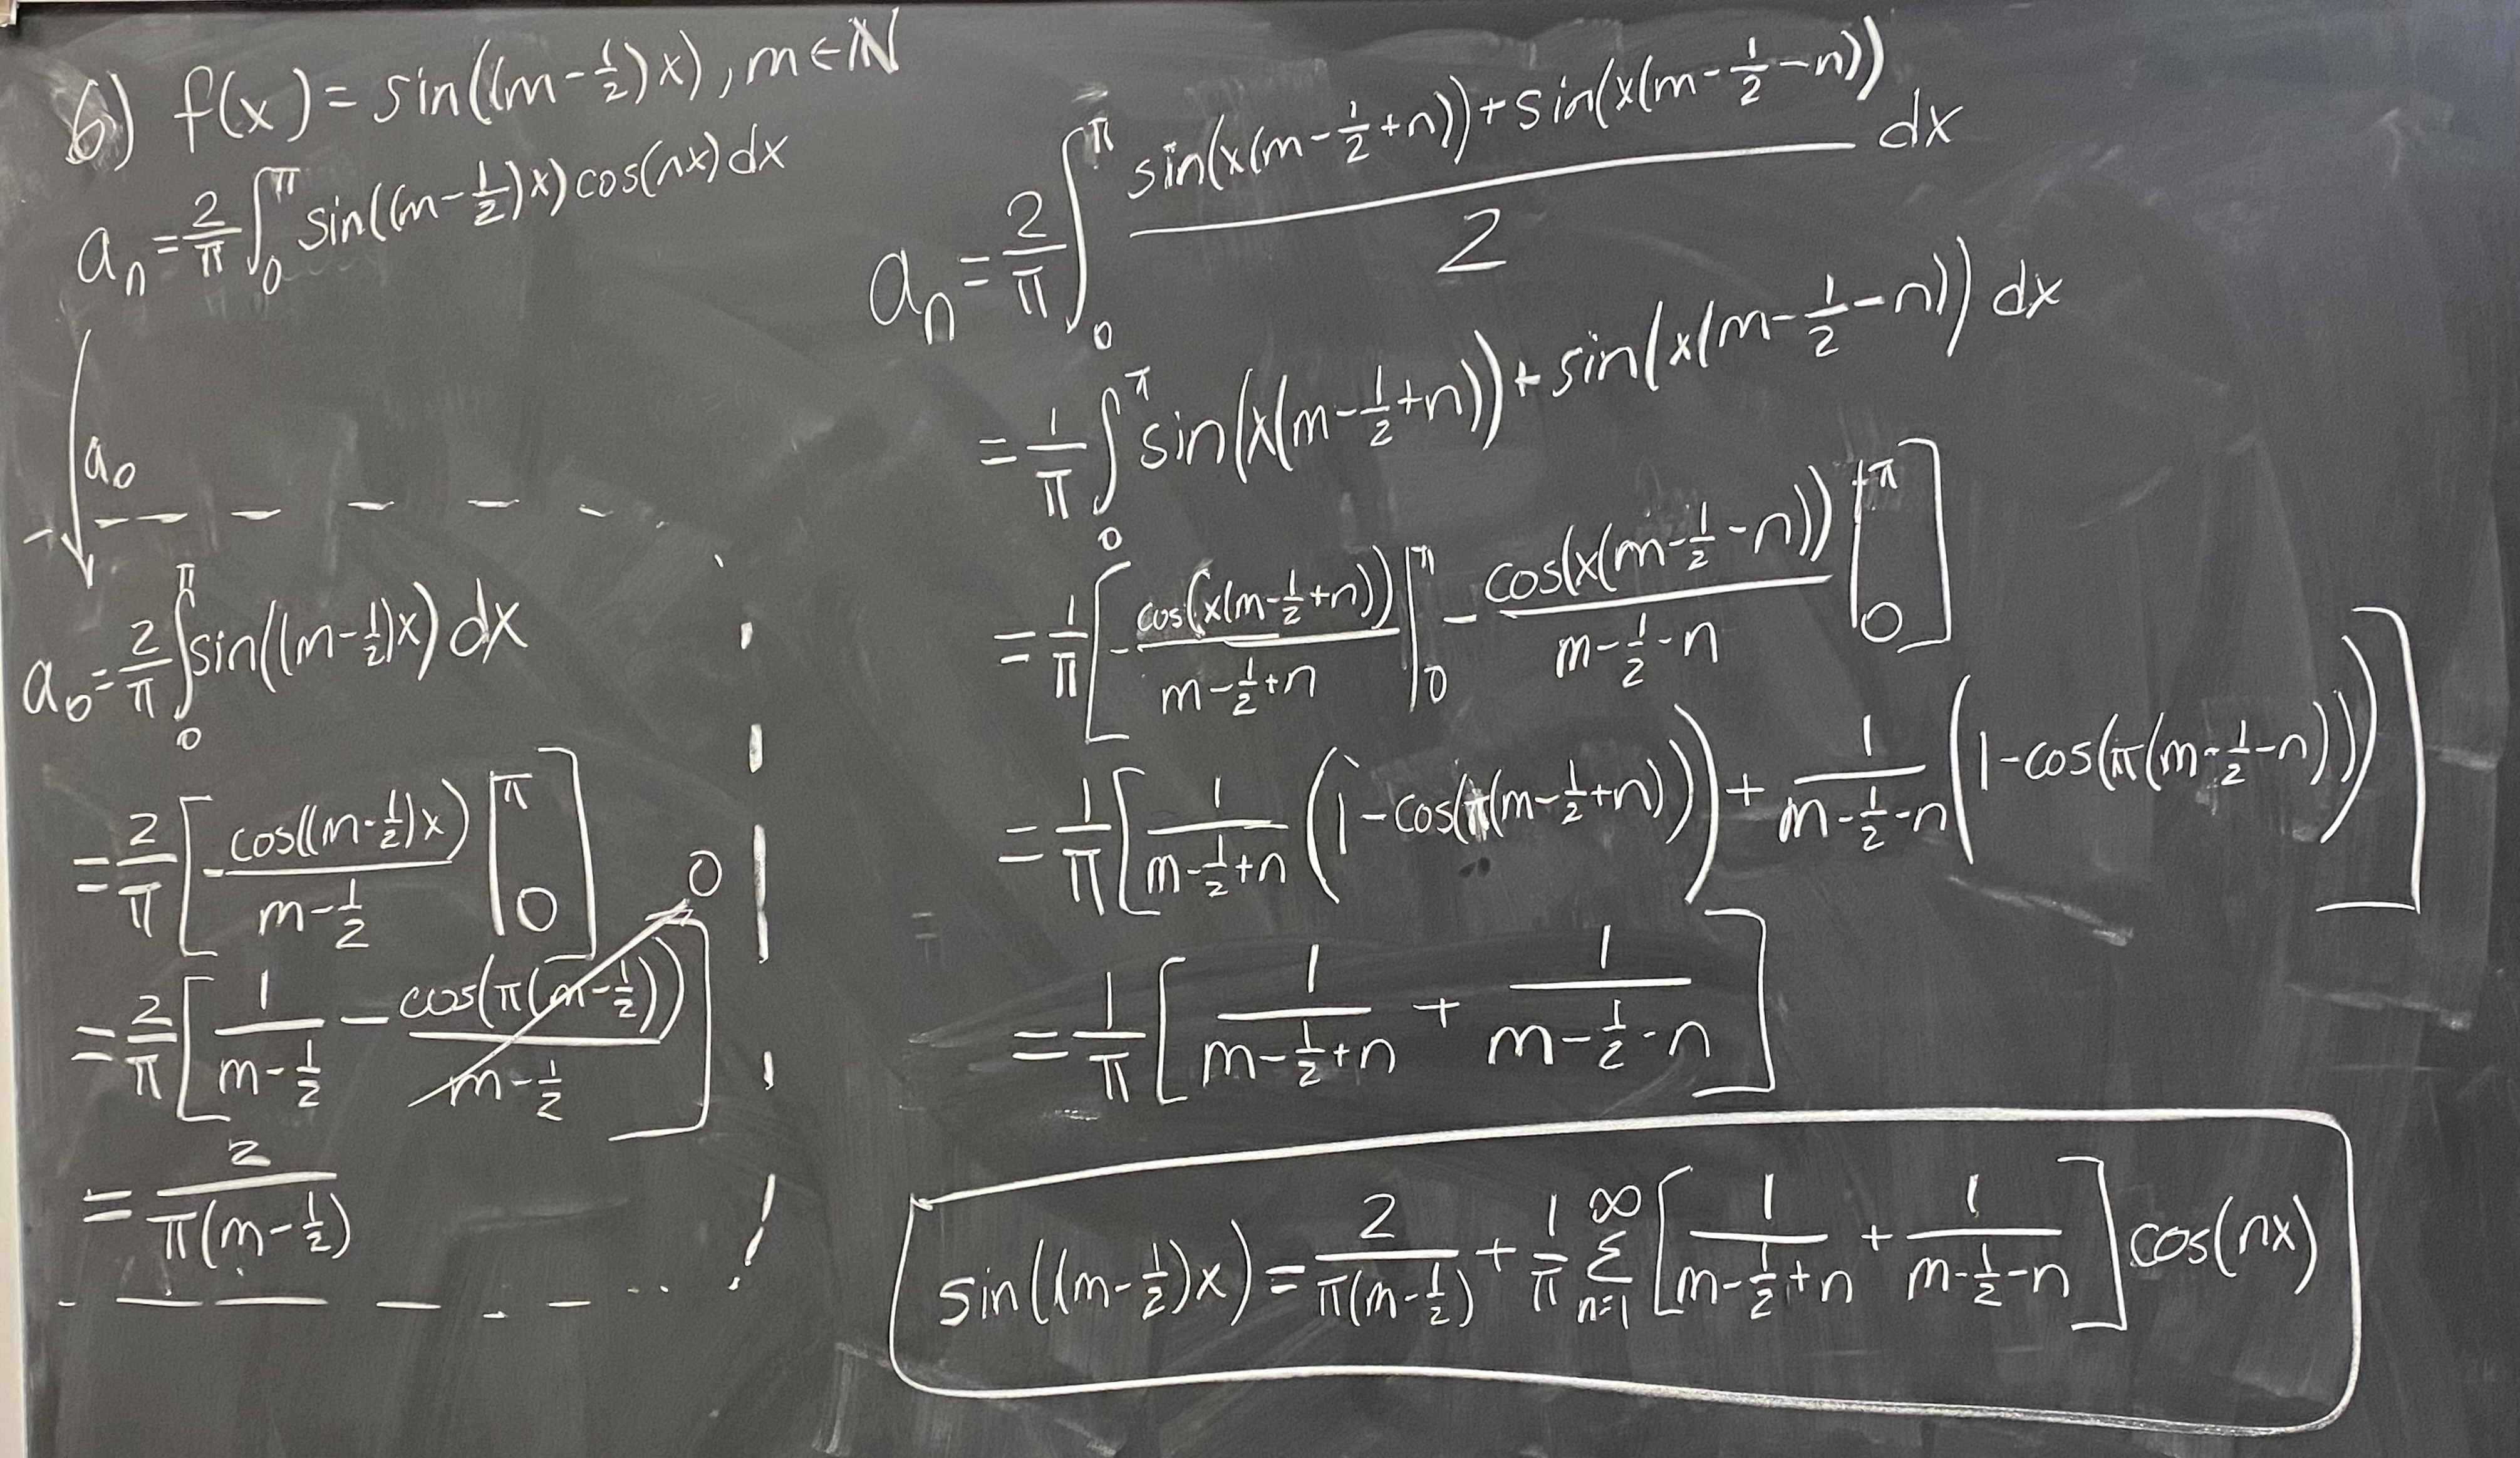 6) f(x) = sin((m-1/2)x), m∈ℕ
a_n = 2/π ∫_0^π sin((m-1/2)x)cos(nx)dx
a_0
a_0 = 2/π ∫_0^π sin((m-1/2)x) dx
= 2/π [-cos((m-1/2)x)/(m-1/2) |_0^π]
= 2/π [1/(m-1/2) - cos(π(m-1/2))/(m-1/2)] 0
= 2/(π(m-1/2))
a_n = 2/π ∫_0^π (sin(x(m-1/2+n))+sin(x(m-1/2-n)))/2 dx
= 1/π ∫_0^π sin(x(m-1/2+n))+sin(x(m-1/2-n)) dx
= 1/π [-cos(x(m-1/2+n))/(m-1/2+n) |_0^π - cos(x(m-1/2-n))/(m-1/2-n) |_0^π]
= 1/π [1/(m-1/2+n) (1-cos(π(m-1/2+n))) + 1/(m-1/2-n) (1-cos(π(m-1/2-n)))]
= 1/π [1/(m-1/2+n) + 1/(m-1/2-n)]
sin((m-1/2)x) = 2/(π(m-1/2)) + 1/π Σ_{n=1}^∞ [1/(m-1/2+n) + 1/(m-1/2-n)] cos(nx)